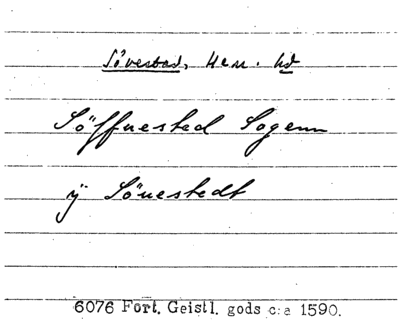 Sövestad, Herr. hd
Söffuested Sogenn
ÿ Söuestedt
6076 Fört. Geistl. gods c:a 1590.